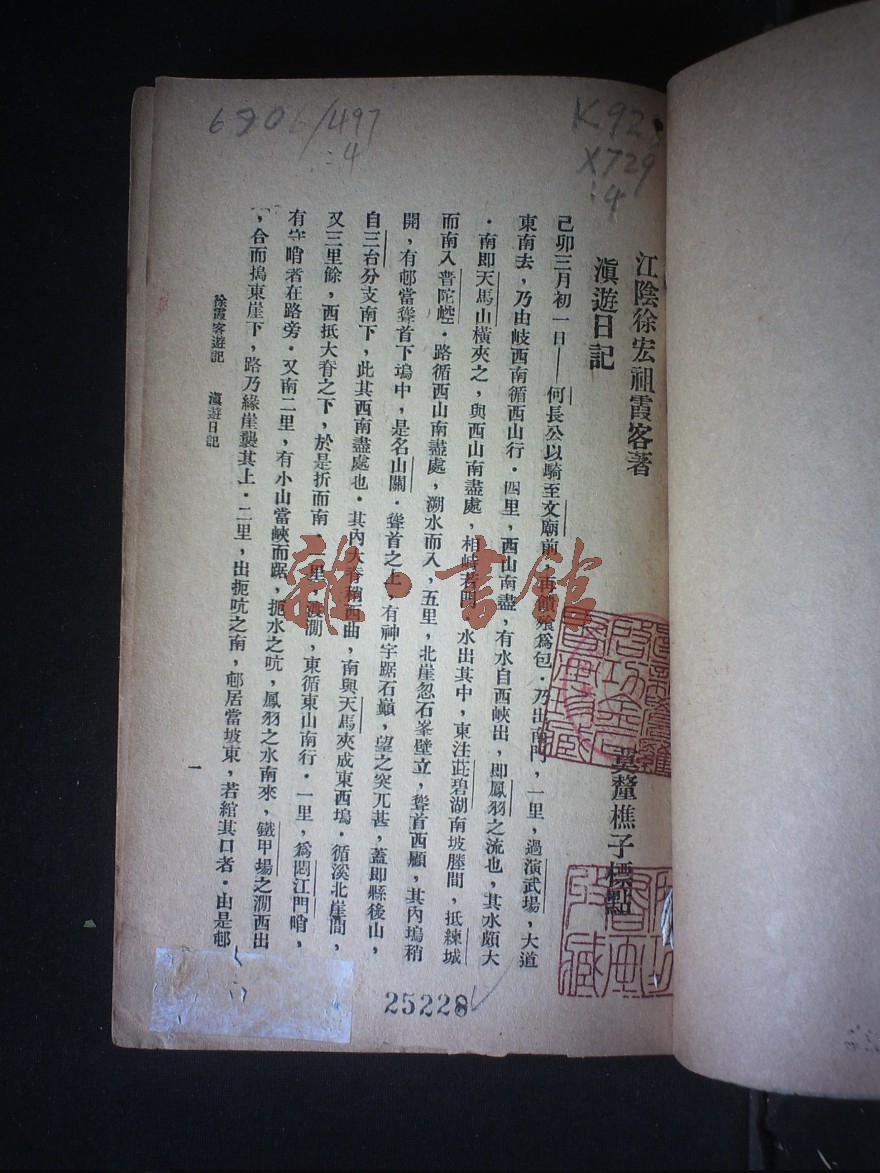 6906/497
:4
K92
X729
:4
江陰徐宏祖霞客著
滇遊日記
莫釐樵子標點
己卯三月初一日——何長公以騎至文廟前，再餽餐爲包．乃出南門，一里，過演武場，大道
東南去，乃由岐西南循西山行．四里，西山南盡，有水自西峽出，即鳳羽之流也，其水頗大
．南即天馬山橫夾之，與西山南盡處，相峙若門，水出其中，東注茈碧湖南坡塍間，抵練城
而南入普陀崆．路循西山南盡處，溯水而入，五里，北崖忽石峯壁立，聳首西顧，其內塢稍
開，有邨當聳首下塢中，是名山關．聳首之上，有神宇踞石巔，望之突兀甚，蓋即縣後山，
自三台分支南下，此其西南盡處也．其內大脊稍西曲，南與天馬夾成東西塢．循溪北崖間，
又三里餘，西抵大脊之下，於是折而南．一里，渡澗，東循東山南行．一里，爲悶江門哨，
有守哨者在路旁．又南二里，有小山當峽而踞，扼水之吭，鳳羽之水南來，鐵甲場之澗西出
，合而搗東崖下，路乃緣崖襲其上．二里，出扼吭之南，邨居當坡東，若綰其口者．由是邨
徐霞客遊記　滇遊日記
一
25228
雜·書館